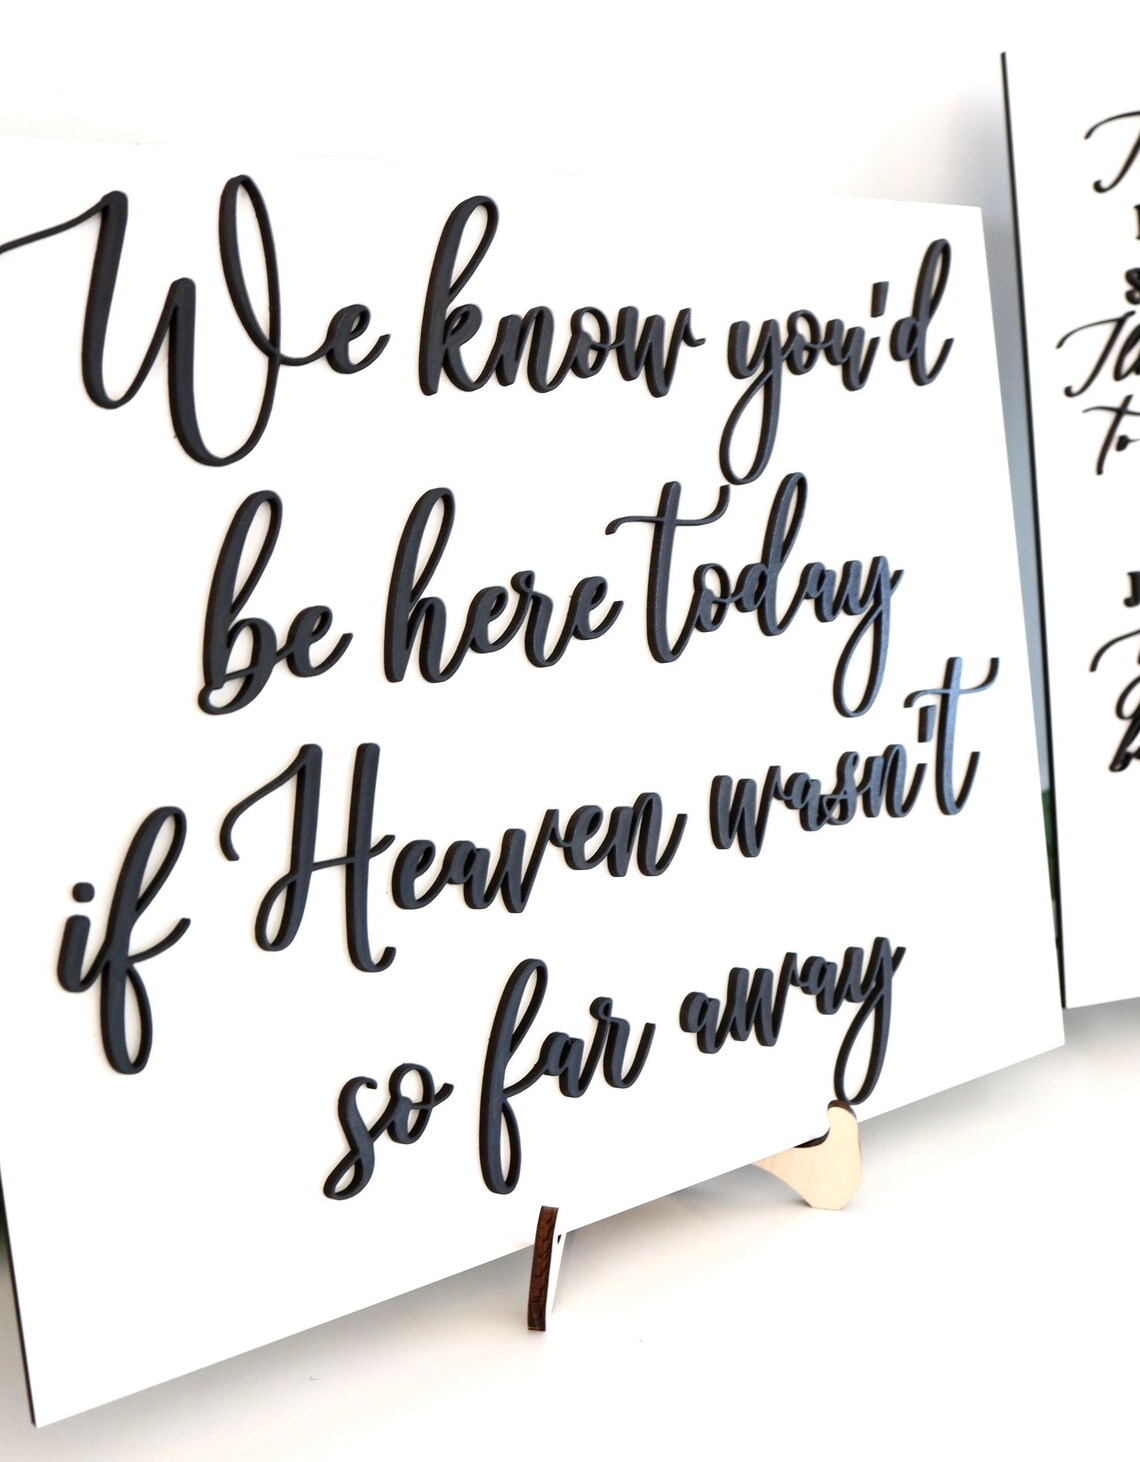 We know you'd
be here today
if Heaven wasn't
so far away
to